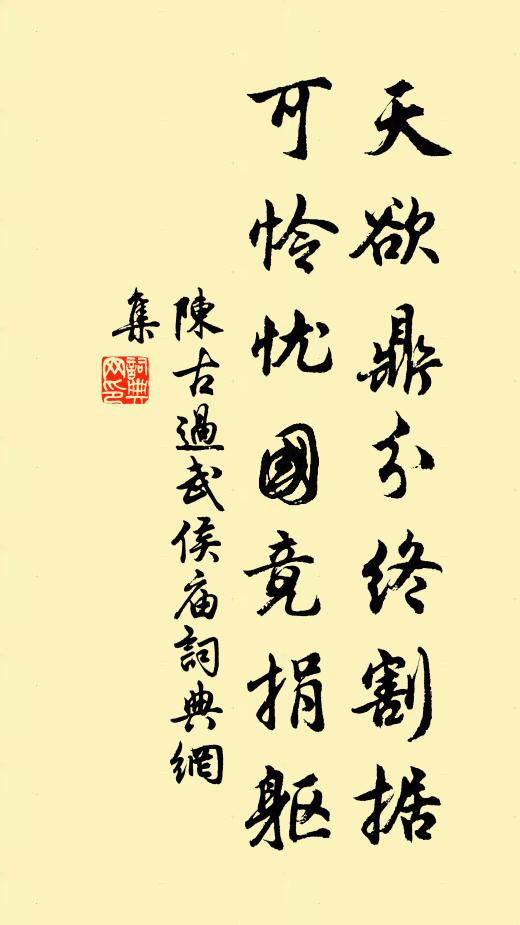 天欲鼎分终割据
可怜忧國竟捐躯
陳古過武侯庙詞典網
集
詞典网印